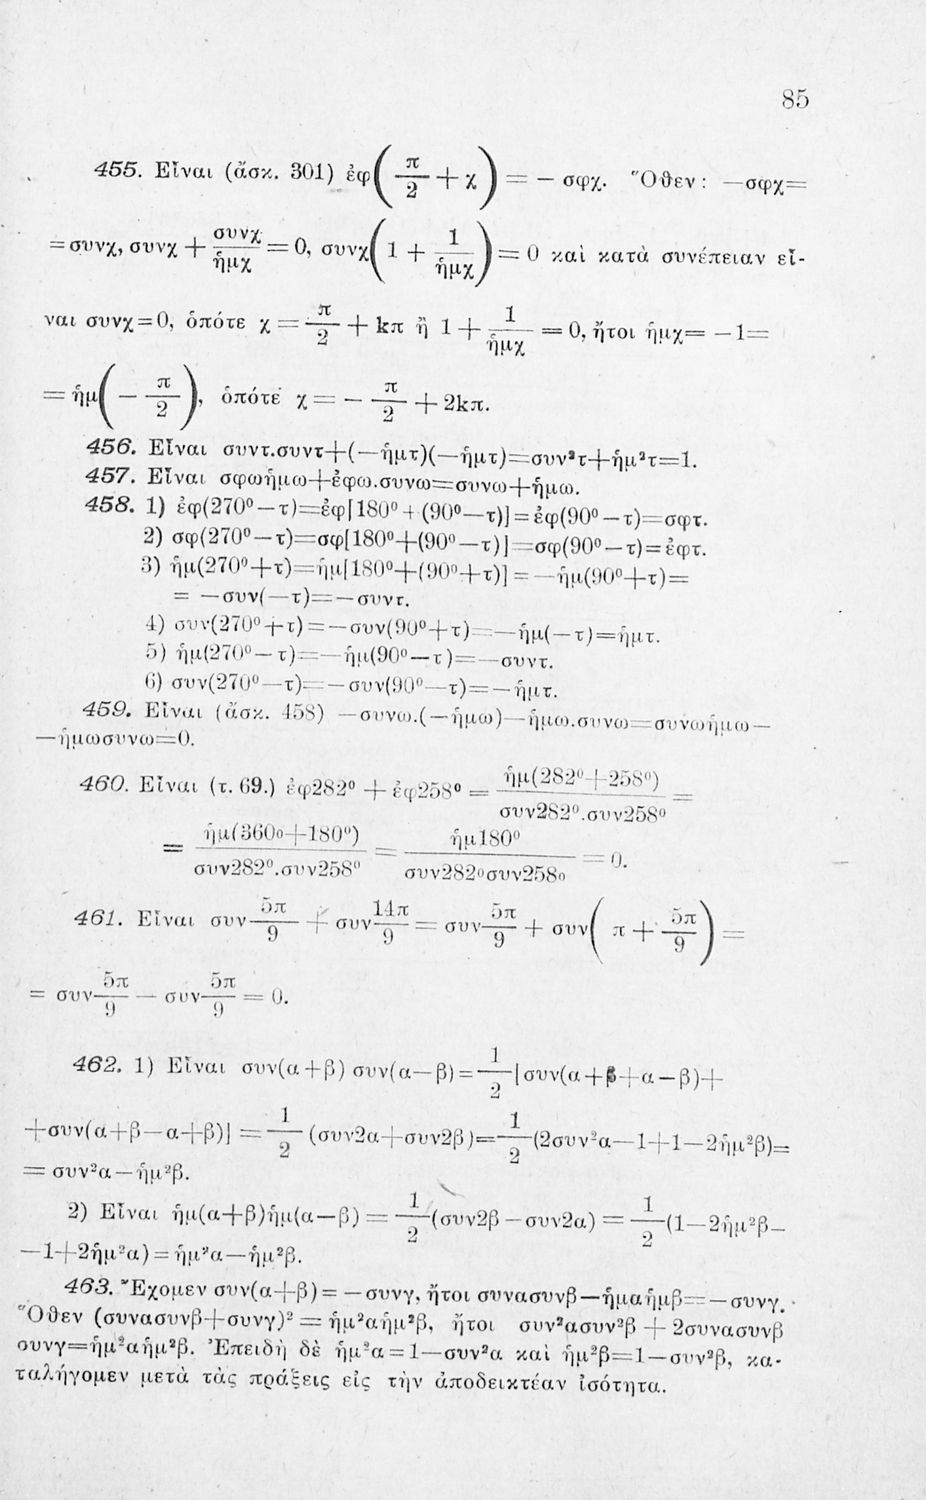 85
455. Εἶναι (ἄσκ. 301) ἐφ(π/2 + χ) = — σφχ. Ὅθεν : —σφχ=
=συνχ, συνχ + συνχ/ἡμχ = 0, συνχ(1 + 1/ἡμχ) = 0 καὶ κατὰ συνέπειαν εἶ-
ναι συνχ=0, ὁπότε χ = π/2 + kπ ἢ 1 + 1/ἡμχ = 0, ἤτοι ἡμχ= —1=
= ἡμ(— π/2), ὁπότε χ = — π/2 + 2kπ.
456. Εἶναι συντ.συντ+(—ἡμτ)(—ἡμτ)=συν²τ+ἡμ²τ=1.
457. Εἶναι σφωἡμω+ἐφω.συνω=συνω+ἡμω.
458. 1) ἐφ(270⁰—τ)=ἐφ[180⁰+(90⁰—τ)]=ἐφ(90⁰—τ)=σφτ.
2) σφ(270⁰—τ)=σφ[180⁰+(90⁰—τ)]=σφ(90⁰—τ)=ἐφτ.
3) ἡμ(270⁰+τ)=ἡμ[180⁰+(90⁰+τ)]=—ἡμ(90⁰+τ)=
= —συν(—τ)=—συντ.
4) συν(270⁰+τ)=—συν(90⁰+τ)=—ἡμ(—τ)=ἡμτ.
5) ἡμ(270⁰—τ)=—ἡμ(90⁰—τ)=—συντ.
6) συν(270⁰—τ)=—συν(90⁰—τ)=—ἡμτ.
459. Εἶναι (ἄσκ. 458) —συνω.(—ἡμω)—ἡμω.συνω=συνωἡμω—
—ἡμωσυνω=0.
460. Εἶναι (τ. 69.) ἐφ282⁰ + ἐφ258⁰ = ἡμ(282⁰+258⁰)/συν282⁰.συν258⁰ =
= ἡμ(360⁰+180⁰)/συν282⁰.συν258⁰ = ἡμ180⁰/συν282⁰συν258⁰ = 0.
461. Εἶναι συν5π/9 + συν14π/9 = συν5π/9 + συν(π + 5π/9) =
= συν5π/9 — συν5π/9 = 0.
462. 1) Εἶναι συν(α+β) συν(α—β)=1/2[συν(α+β+α—β)+
+συν(α+β—α+β)] = 1/2 (συν2α+συν2β)=1/2(2συν²α—1+1—2ἡμ²β)=
= συν²α—ἡμ²β.
2) Εἶναι ἡμ(α+β)ἡμ(α—β) = 1/2(συν2β—συν2α) = 1/2(1—2ἡμ²β—
—1+2ἡμ²α)=ἡμ²α—ἡμ²β.
463. Ἔχομεν συν(α+β)= —συνγ, ἤτοι συνασυνβ—ἡμαἡμβ=—συνγ.
Ὅθεν (συνασυνβ+συνγ)² = ἡμ²αἡμ²β, ἤτοι συν²ασυν²β + 2συνασυνβ
συνγ=ἡμ²αἡμ²β. Ἐπειδὴ δὲ ἡμ²α=1—συν²α καὶ ἡμ²β=1—συν²β, κα-
ταλήγομεν μετὰ τὰς πράξεις εἰς τὴν ἀποδεικτέαν ἰσότητα.